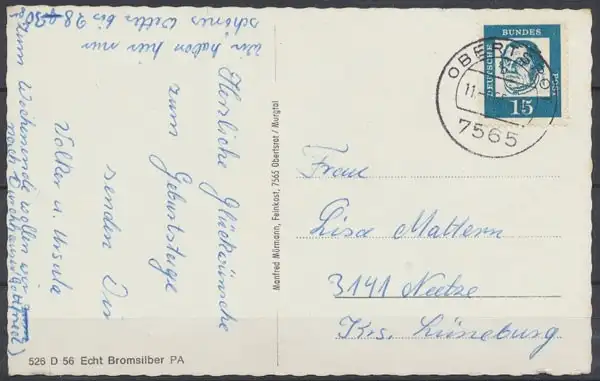 Herzliche Glückwünsche
zum Geburtstage
senden Dir
Volker u. Ursula
Wir haben hier nur
schönes Wetter bis 28°
(Zum Wochenende wollen wir
nach
526 D 56 Echt Bromsilber PA
Manfred Mürmann, Feinkost, 7565 Obertsrot / Murgtal
DEUTSCHE BUNDESPOST
15
OBERTSROT
11.
7565
Frau
Lisa Mattern
3141 Neetze
Krs. Lüneburg